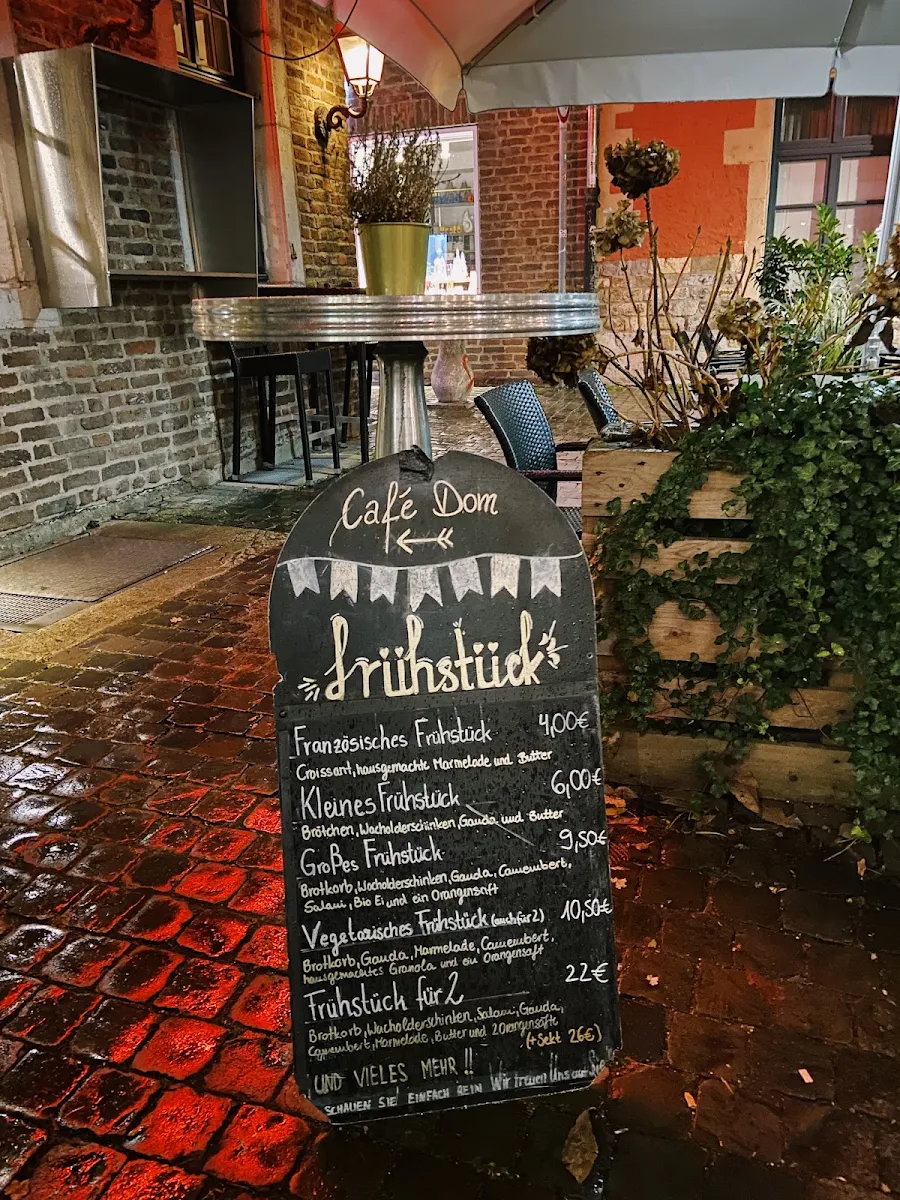 Café Dom
frühstück
Französisches Frühstück 4,00€
Croissant, hausgemachte Marmelade und Butter
Kleines Frühstück 6,00€
Brötchen, Wacholderschinken, Gauda und Butter
Großes Frühstück 9,50€
Brotkorb, Wacholderschinken, Gauda, Camembert,
Salami, Bio Ei und ein Orangensaft
Vegetarisches Frühstück (auch für 2) 10,50€
Brotkorb, Gauda, Marmelade, Camembert,
hausgemachtes Granola und ein Orangensaft
Frühstück für 2 22€
Brotkorb, Wacholderschinken, Salami, Gauda,
Camembert, Marmelade, Butter und 2 Orangensäfte
(+ Sekt 26€)
UND VIELES MEHR!!
SCHAUEN SIE EINFACH REIN Wir freuen Uns auf Sie